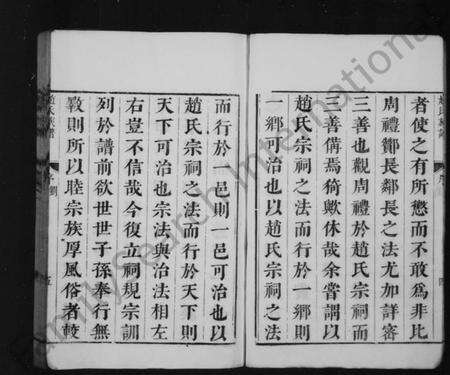 者使之有所懲而不敢為非比
周禮鄰長鄰長之法尤加詳審
三善也觀周禮於趙氏宗祠而
三善備焉猗歟休哉余嘗謂以
趙氏宗祠之法而行於一鄉則
一鄉可治也以趙氏宗祠之法
而行於一邑則一邑可治也以
趙氏宗祠之法而行於天下則
天下可治也宗法與治法相左
右豈不信哉今復立祠規宗訓
列於譜前欲世世子孫奉行無
斁則所以睦宗族厚風俗者較
五
FamilySearch International